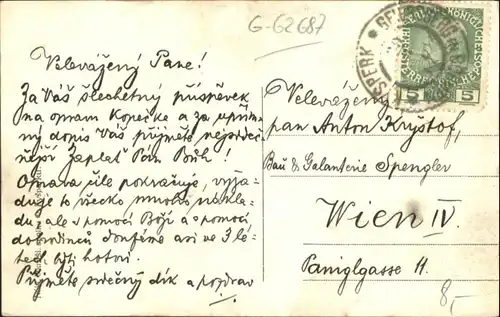 G-G2687
Velevážený Pane!
Za Váš šlechetný příspěvek
na opravu Kopečka a za upřím
ný dopis Váš přijměte nejsrdeč
nější Zaplať Pán Bůh!
Oprava čile pokračuje, vyža=
duje to všecko mnoho nákla=
du, ale s pomocí Boží a s pomocí
dobrodinců doufáme asi ve 3 lé=
tech býti hotovi.
Přijměte srdečný dík a pozdrav
Velevážený
pan Anton Kryštof,
Bau & Galanterie Spengler
Wien IV.
Paniglgasse 11.
8,-
5 5